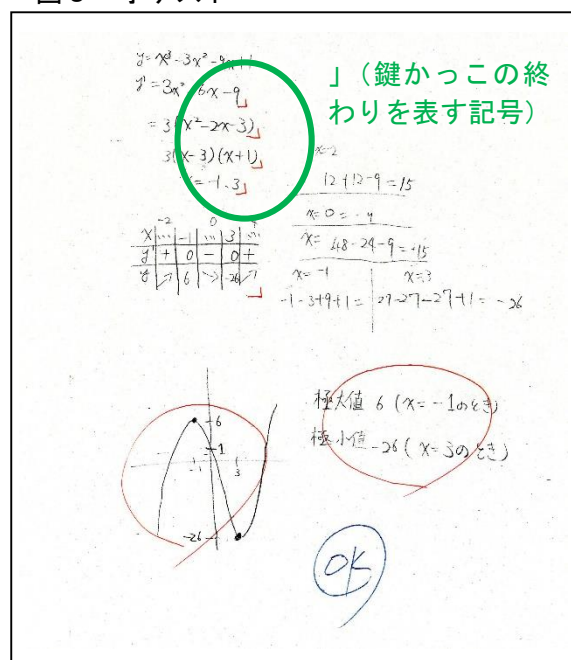 y = x³ - 3x² - 9x + 1
y' = 3x² - 6x - 9」
= 3(x² - 2x - 3)」
3(x - 3)(x + 1)」
x = -1, 3」
」(鍵かっこの終
わりを表す記号)
x=-2
12 + 12 - 9 = 15
x = 0 = -9
x = 48 - 24 - 9 = +15
x = -1
x = 3
-1 - 3 + 9 + 1 =
27 - 27 - 27 + 1 = -26
-2 0 4
x … -1 … 3 …
y' + 0 - 0 +
y ↗ 6 ↘ -26 ↗」
極大値 6 (x = -1のとき)
極小値 -26 (x = 3のとき)
6
1
-1 3
-26
OK